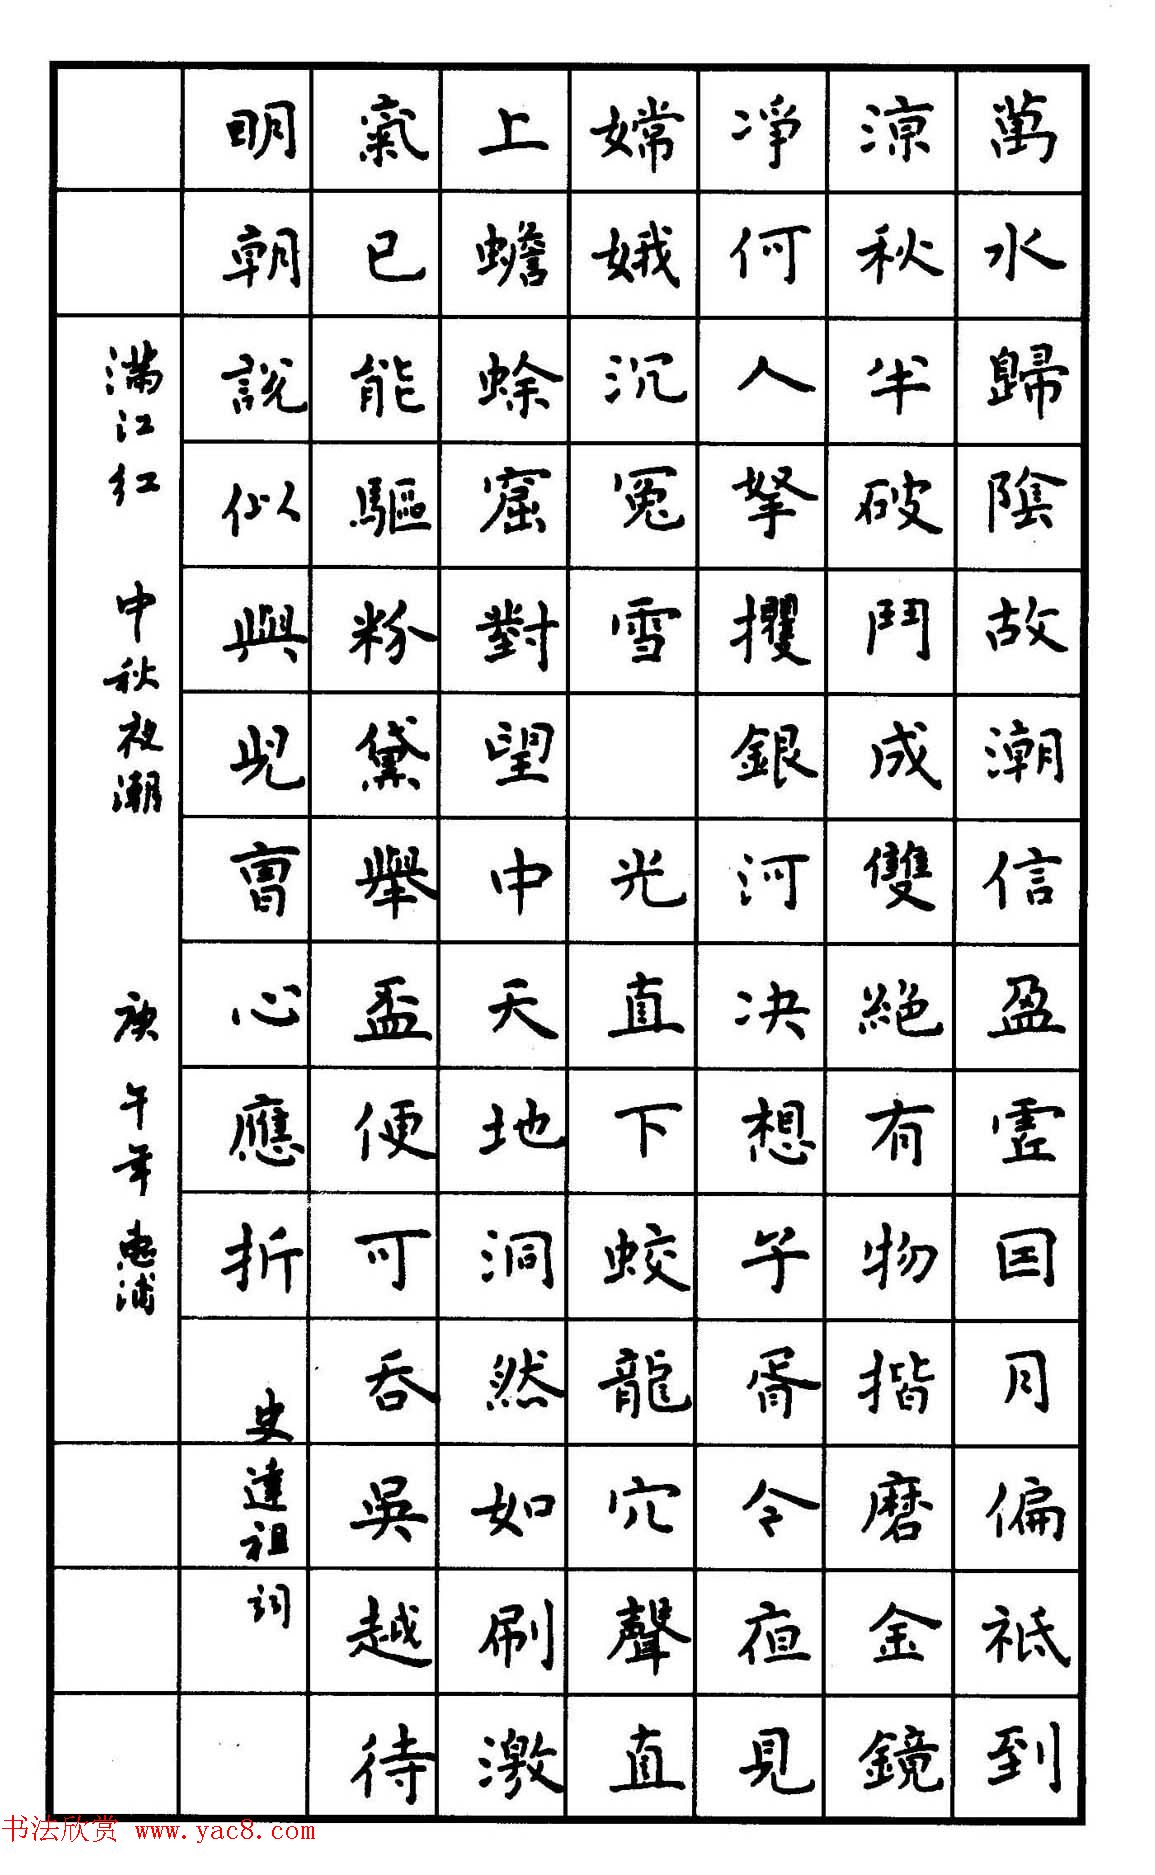 萬水歸陰故潮信盈虛因月偏祗到
涼秋半破鬥成雙絕有物揩磨金鏡
淨何人拏攫銀河決想子胥今夜見
嫦娥沉冤雪 光直下蛟龍穴聲直
上蟾蜍窟對望中天地洞然如刷激
氣已能驅粉黛舉盃便可吞吳越待
明朝說似與兒曹心應折
史達祖詞
滿江紅 中秋夜潮 庚午年 惠浦
书法欣赏 www.yac8.com